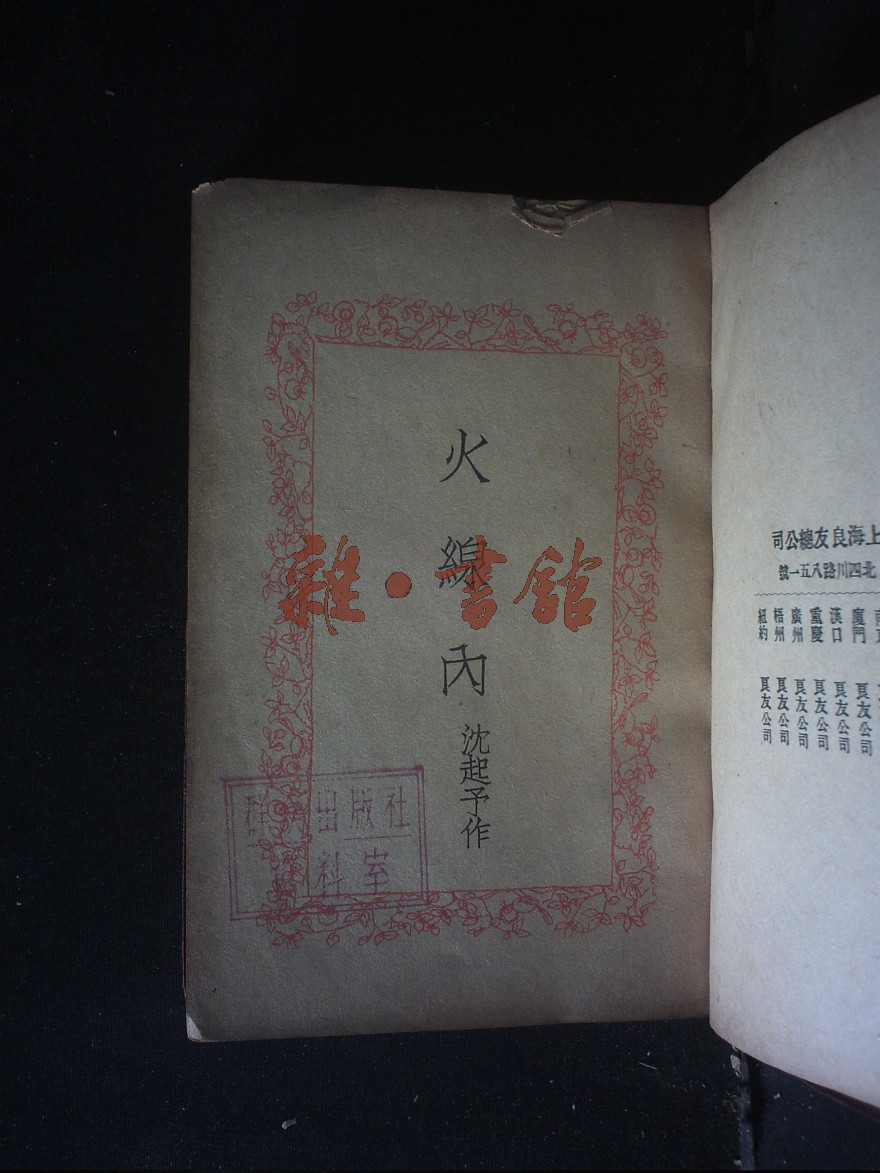 火線內
沈起予作
雜·書館
出版社
料室
上海良友總公司
北四川路八五一號
廈門 良友公司
漢口 良友公司
重慶 良友公司
廣州 良友公司
梧州 良友公司
紐約 良友公司